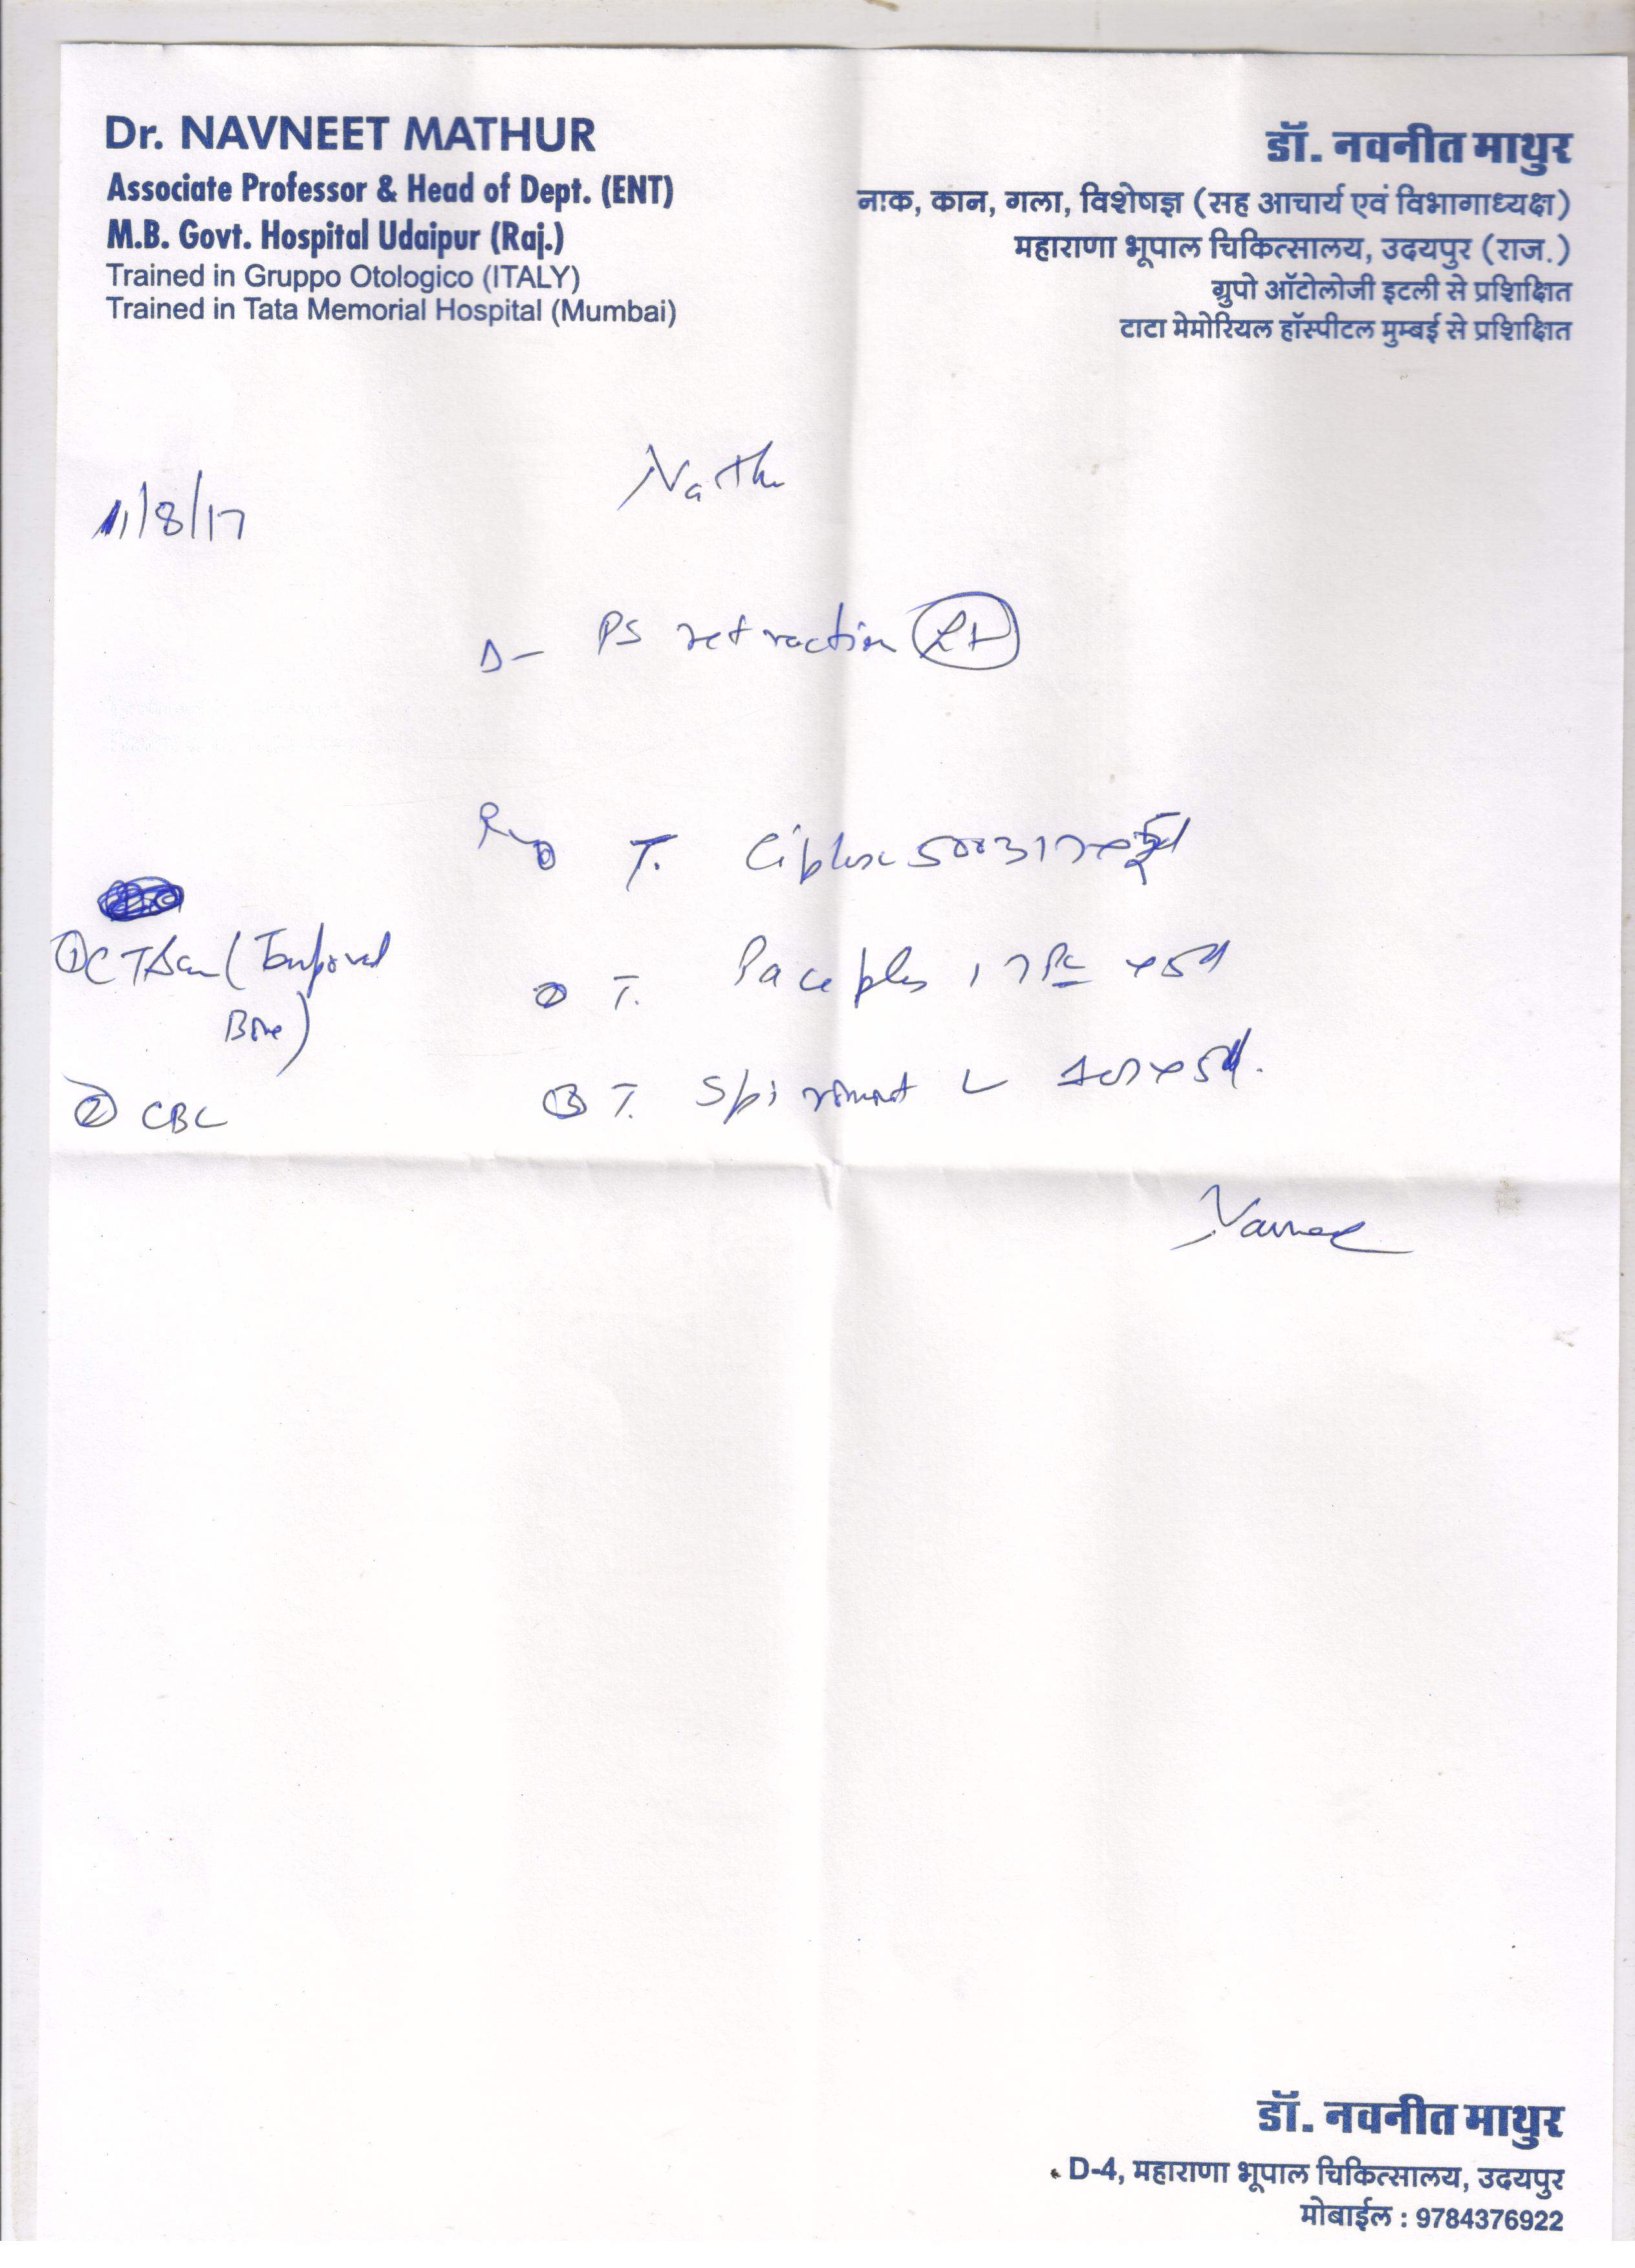 Dr. NAVNEET MATHUR
Associate Professor & Head of Dept. (ENT)
M.B. Govt. Hospital Udaipur (Raj.)
Trained in Gruppo Otologico (ITALY)
Trained in Tata Memorial Hospital (Mumbai)
डॉ. नवनीत माथुर
नाक, कान, गला, विशेषज्ञ (सह आचार्य एवं विभागाध्यक्ष)
महाराणा भूपाल चिकित्सालय, उदयपुर (राज.)
ग्रुपो ऑटोलोजी इटली से प्रशिक्षित
टाटा मेमोरियल हॉस्पीटल मुम्बई से प्रशिक्षित
Nathu
11/8/17
D- PS retraction Lt
① T. 500
① CT Scan (Temporal
Bone)
② CBC
② T. x5d
③ T. x5d.
डॉ. नवनीत माथुर
D-4, महाराणा भूपाल चिकित्सालय, उदयपुर
मोबाईल : 9784376922